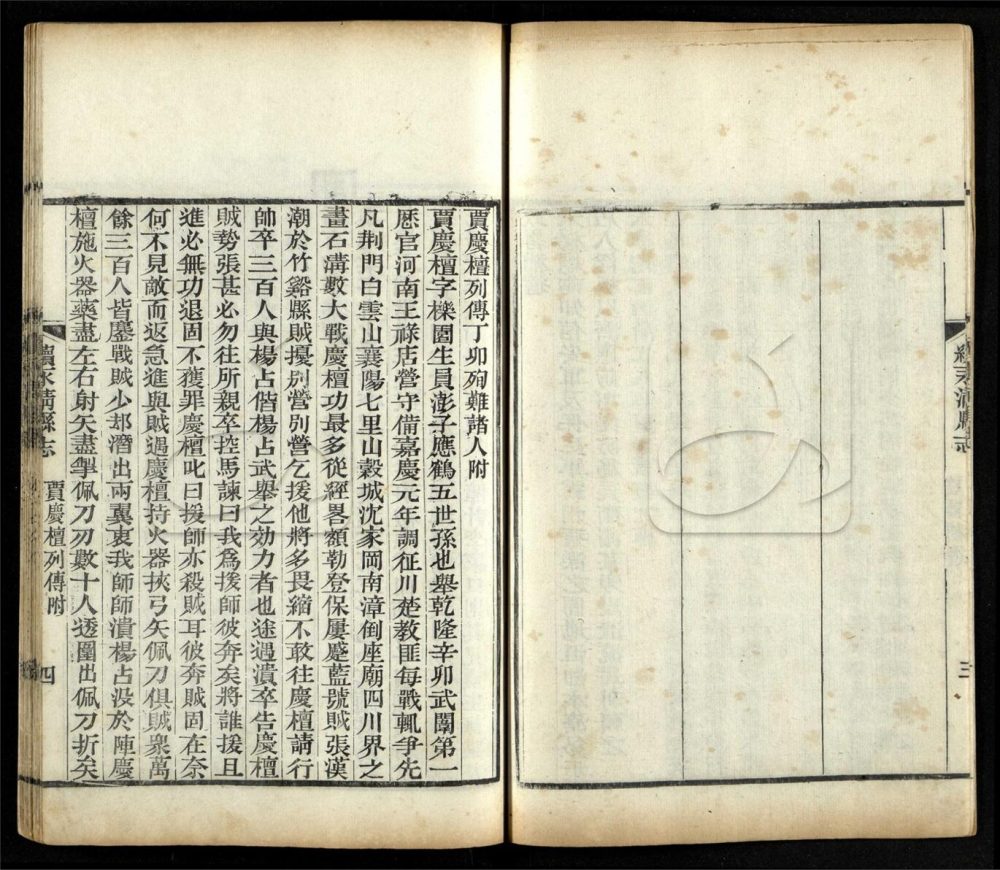 三
賈慶檀列傳丁卯殉難諸人附
賈慶檀字樸園生員澎子應鶴五世孫也舉乾隆辛卯武闈第一
歷官河南王祿店營守備嘉慶元年調征川楚教匪每戰輒爭先
凡荆門白雲山襄陽七里山穀城沈家岡南漳倒座廟四川界之
畫石溝數大戰慶檀功最多從經畧額勒登保屢蹙藍號賊張漢
潮於竹谿縣賊擾別營別營乞援他將多畏縮不敢往慶檀請行
帥卒三百人與楊占偕楊占武舉之効力者也途遇潰卒告慶檀
賊勢張甚必勿往所親卒控馬諫曰我爲援師彼奔矣將誰援且
進必無功退固不獲罪慶檀叱曰援師亦殺賊耳彼奔賊固在奈
何不見敵而返急進與賊遇慶檀持火器挾弓矢佩刀俱賊衆萬
餘三百人皆鏖戰賊少却潛出兩翼衷我師師潰楊占没於陣慶
檀施火器藥盡左右射矢盡掣佩刀刃數十人透圍出佩刀折矣
續永清縣志
賈慶檀列傳附
四